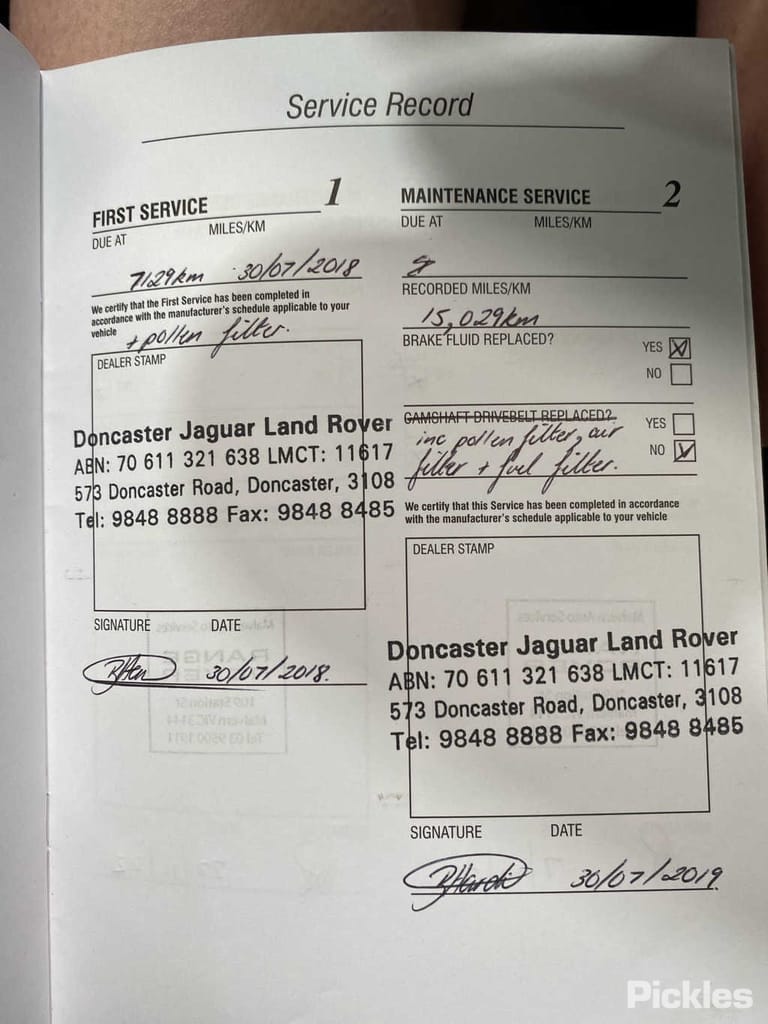 Service Record
FIRST SERVICE 1
DUE AT MILES/KM
7129km 30/07/2018
We certify that the First Service has been completed in
accordance with the manufacturer's schedule applicable to your
vehicle
+ pollen filter.
DEALER STAMP
Doncaster Jaguar Land Rover
ABN: 70 611 321 638 LMCT: 11617
573 Doncaster Road, Doncaster, 3108
Tel: 9848 8888 Fax: 9848 8485
SIGNATURE DATE
30/07/2018.
MAINTENANCE SERVICE 2
DUE AT MILES/KM
RECORDED MILES/KM
15,029km
BRAKE FLUID REPLACED?
YES
NO
CAMSHAFT DRIVEBELT REPLACED?
YES
NO
inc pollen filter, air
filter + fuel filter.
We certify that this Service has been completed in accordance
with the manufacturer's schedule applicable to your vehicle
DEALER STAMP
Doncaster Jaguar Land Rover
ABN: 70 611 321 638 LMCT: 11617
573 Doncaster Road, Doncaster, 3108
Tel: 9848 8888 Fax: 9848 8485
SIGNATURE DATE
30/07/2019.
Pickles